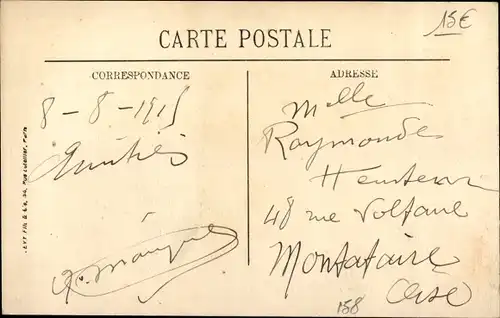 15€
CARTE POSTALE
CORRESPONDANCE
ADRESSE
8-8-1915
Amitiés
Mlle
Raymonde
48 rue Voltaire
Montataire
Oise
158